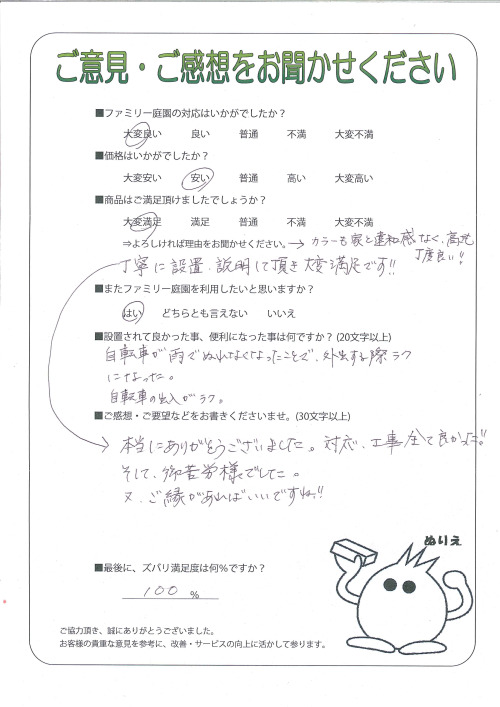 ご意見・ご感想をお聞かせください
■ファミリー庭園の対応はいかがでしたか？
大変良い 良い 普通 不満 大変不満
■価格はいかがでしたか？
大変安い 安い 普通 高い 大変高い
■商品はご満足頂けましたでしょうか？
大変満足 満足 普通 不満 大変不満
⇒よろしければ理由をお聞かせください。→ カラーも家と違和感なく、高さも
丁度良い！
丁寧に設置、説明して頂き大変満足です!!
■またファミリー庭園を利用したいと思いますか？
はい どちらとも言えない いいえ
■設置されて良かった事、便利になった事は何ですか？(20文字以上)
自転車が雨でぬれなくなったことで、外出する際ラク
になった。
自転車の出入がラク。
■ご感想・ご要望などをお書きくださいませ。(30文字以上)
本当にありがとうございました。対応、工事全て良かった!!
そして、御苦労様でした。
又、ご縁があればいいですね!!
ぬりえ
■最後に、ズバリ満足度は何％ですか？
100 %
ご協力頂き、誠にありがとうございました。
お客様の貴重な意見を参考に、改善・サービスの向上に活かして参ります。